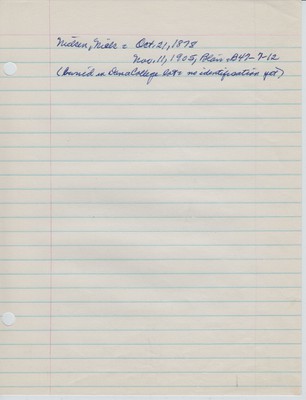 Nielsen, Niels = Oct. 21, 1875
Nov. 11, 1905, Blair B47-7-12
(Buried in Dana College lot = no identification yet)